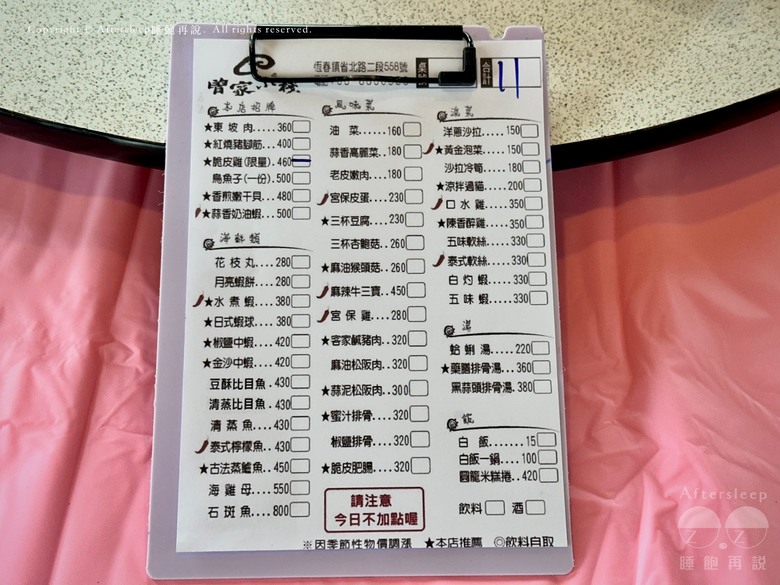 Copyright © Aftersleep睡飽再說. All rights reserved.
恆春鎮省北路二段558號
曾家小棧
合計
11
本店招牌
★東坡肉....360
★紅燒豬腳筋..400
★脆皮雞(限量).460
烏魚子(一份).500
★香煎嫩干貝...480
★蒜香奶油蝦...500
海鮮類
花枝丸....280
月亮蝦餅...280
★水煮蝦....380
★日式蝦球...380
★椒鹽中蝦...420
★金沙中蝦...420
豆酥比目魚.430
清蒸比目魚.430
清蒸魚...430
泰式檸檬魚..430
★古法蒸鱸魚..450
海雞母....550
石斑魚....800
風味菜
油菜......160
蒜香高麗菜..180
老皮嫩肉....180
宮保皮蛋....230
★三杯豆腐....230
三杯杏鮑菇..260
★麻油猴頭菇..260
麻辣牛三寶..450
★宮保雞....280
★客家鹹豬肉..320
麻油松阪肉..320
★蒜泥松阪肉..300
★蜜汁排骨....320
椒鹽排骨....320
★脆皮肥腸....320
請注意
今日不加點喔
涼菜
洋蔥沙拉....150
★黃金泡菜....150
沙拉冷筍....180
★涼拌過貓....200
口水雞....350
★陳香醉雞....350
五味軟絲....330
泰式軟絲....330
白灼蝦....330
五味蝦....330
湯
蛤蜊湯.....220
★藥膳排骨湯...360
黑蒜頭排骨湯.380
飯
白飯.......15
白飯一鍋....100
圓籠米糕捲..420
飲料 酒
※因季節性物價調漲 ★本店推薦 ◎飲料自取
Aftersleep
睡飽再說